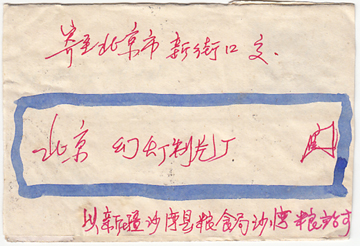 寄至北京市新街口交.
北京 幻灯制片厂.
从新疆沙湾县粮食局沙湾粮站寸